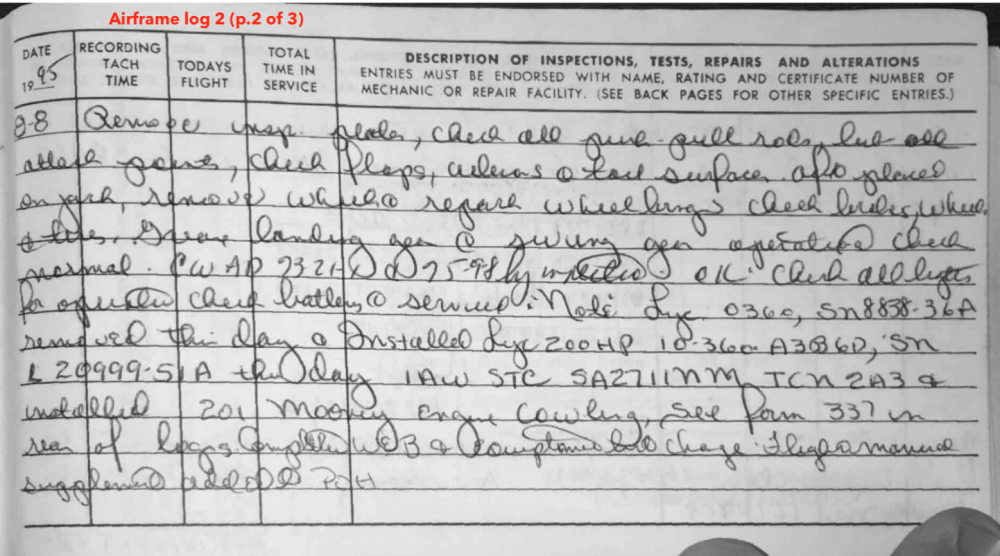 Airframe log 2 (p.2 of 3)
DATE
1995
RECORDING
TACH
TIME
TODAYS
FLIGHT
TOTAL
TIME IN
SERVICE
DESCRIPTION OF INSPECTIONS, TESTS, REPAIRS AND ALTERATIONS
ENTRIES MUST BE ENDORSED WITH NAME, RATING AND CERTIFICATE NUMBER OF
MECHANIC OR REPAIR FACILITY. (SEE BACK PAGES FOR OTHER SPECIFIC ENTRIES.)
Remove insp. plates, check all push-pull rods, lub all
attach points, check flaps, & tail surfaces. placed
on jack, remove wheel bearings check wheels
& tires. landing gear swung gear operational check
normal. CW AD OK. Check all lights
for operation check battery serviced. Note: Lyc. O360, SN 8838-36A
removed this day & Installed Lyc 200HP IO-360 A3B6D, SN
L20999-51A this day IAW STC SA2711NM, TCN 2A3 &
installed 201 Mooney engine cowling, See form 337 in
rear of logs. Completed W&B & change. Flight manual
supplement added POH